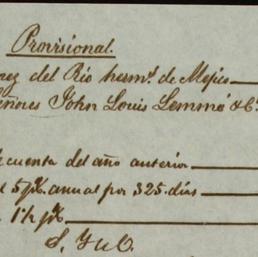 Provisional.
rez del Rio herms. de Mejico
eñores John Louis Lemmé & Co.
cuenta del año anterior
5 p% anual por 325 dias
1½ p%
S. Y u O.